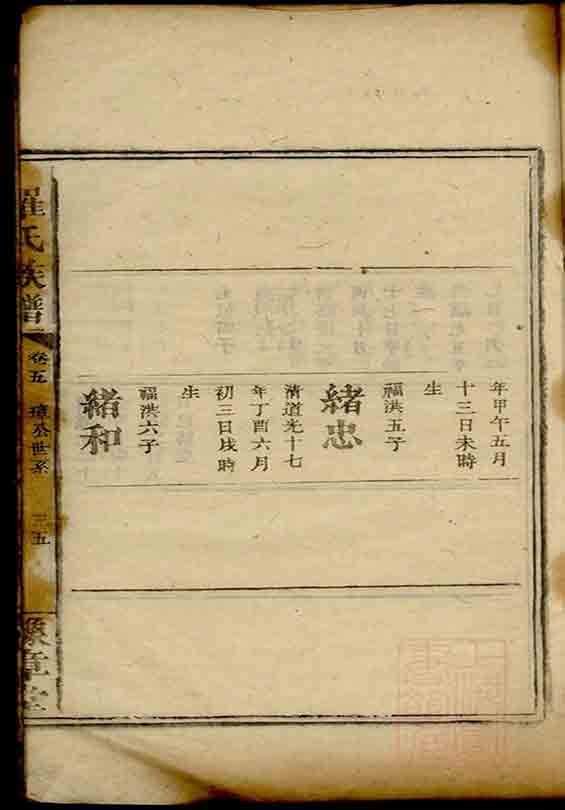 年甲午五月
十三日未時
生
福洪五子
緒忠
清道光十七
年丁酉六月
初三日戌時
生
福洪六子
緒和
羅氏族譜
卷五
璋公世系
三五
豫章堂